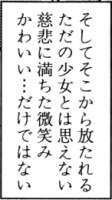 そしてそこから放たれる
ただの少女とは思えない
慈悲に満ちた微笑み
かわいい…だけではない